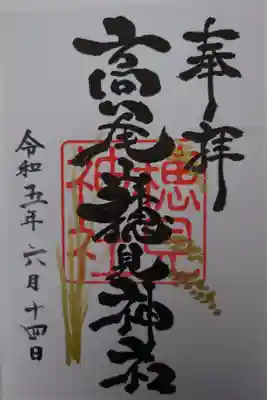 奉拝
高尾穂見神社
穂見
神社
令和五年六月十四日